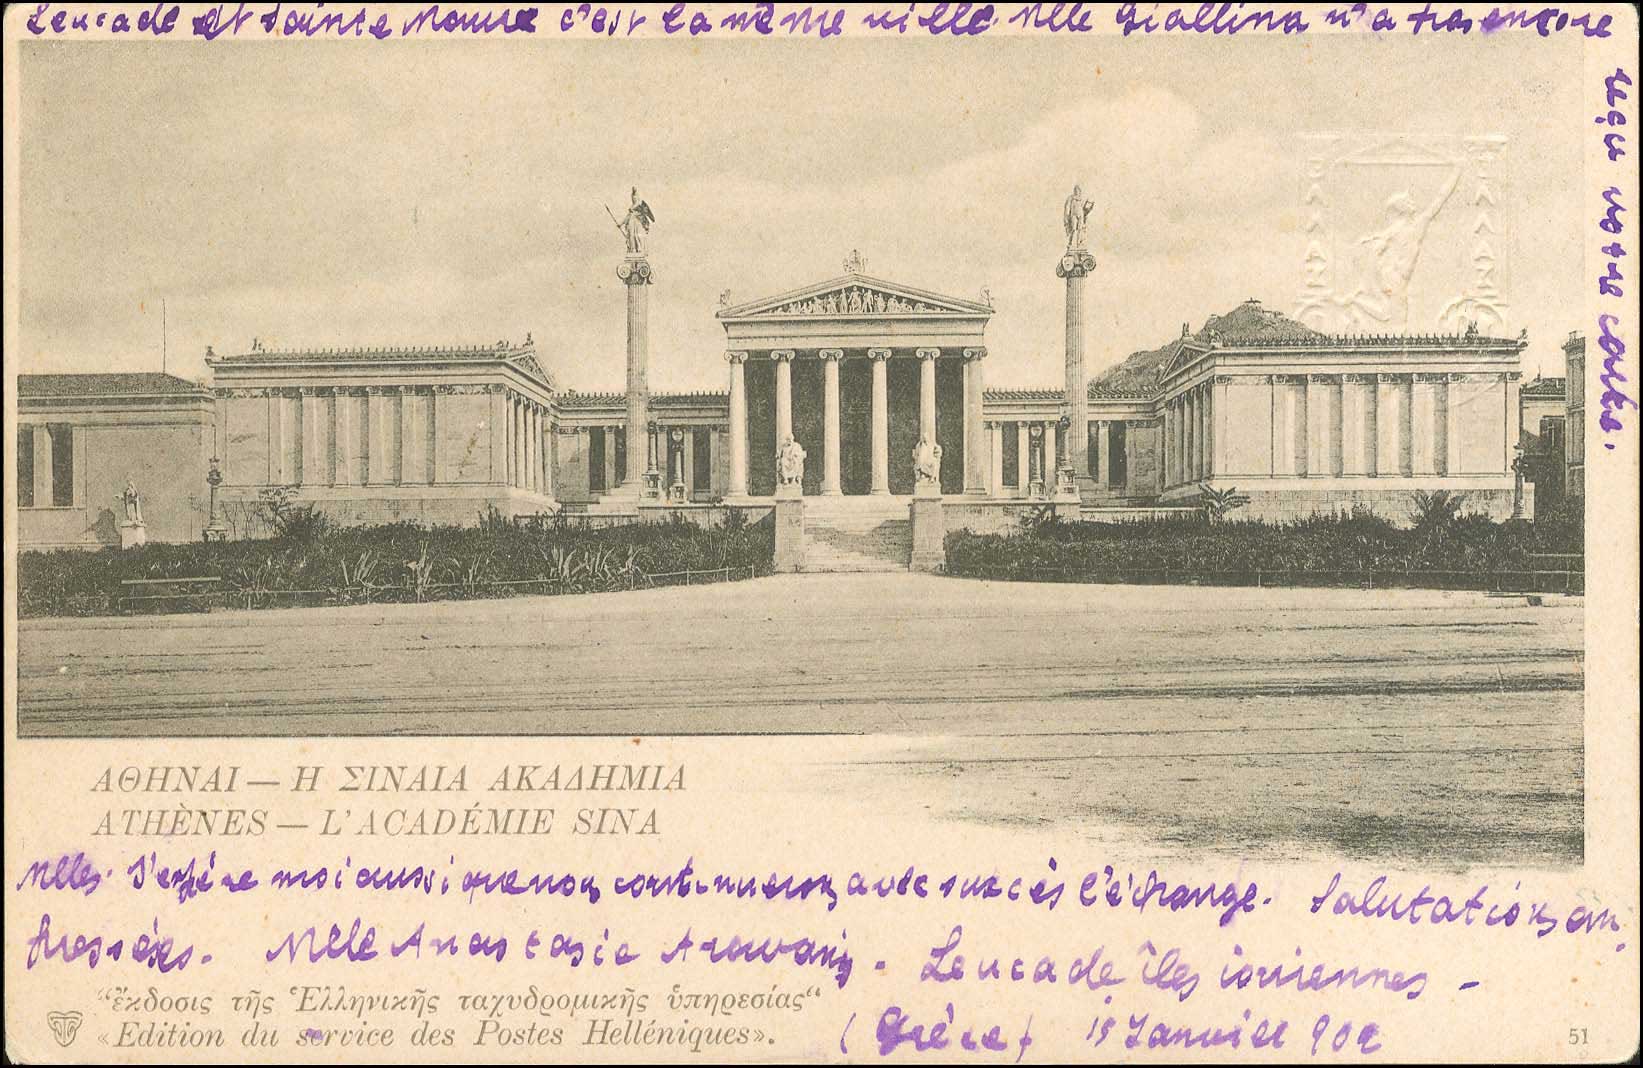 Leucade et Sainte Maure c'est la même ville. Mlle Giallina n'a pas encore
reçu votre carte.
ΕΛΛΑΣ
ΕΛΛΑΣ
ΑΘΗΝΑΙ — Η ΣΙΝΑΙΑ ΑΚΑΔΗΜΙΑ
ATHÈNES — L'ACADÉMIE SINA
Mlles. J'espère moi aussi que nous continuerons avec succès l'échange. Salutations em-
pressées. Mlle Anastasie Aravanis. Leucade îles ioniennes -
“ἔκδοσις τῆς Ἑλληνικῆς ταχυδρομικῆς ὑπηρεσίας“
«Edition du service des Postes Helléniques».
(Grèce) 15 Janvier 902
51